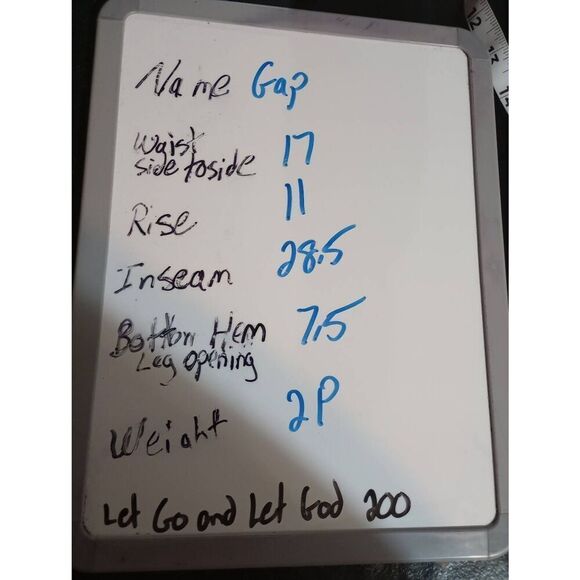 Name Gap
Waist
side toside 17
Rise 11
Inseam 28.5
Bottom Hem 7.5
Leg opening
Weight 2P
Let Go and Let God 200
12
13